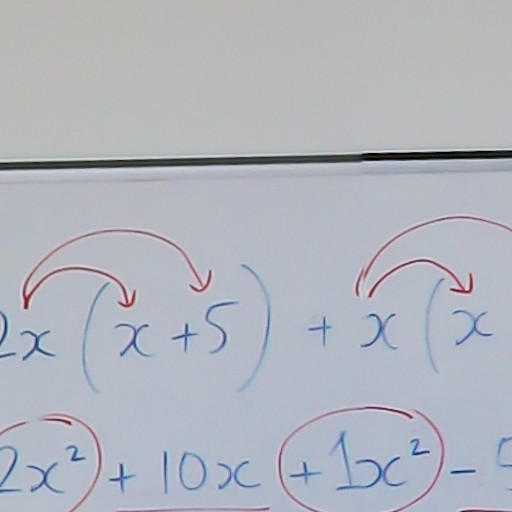 2x (x + 5) + x (x
2x² + 10x + 1x² - 5